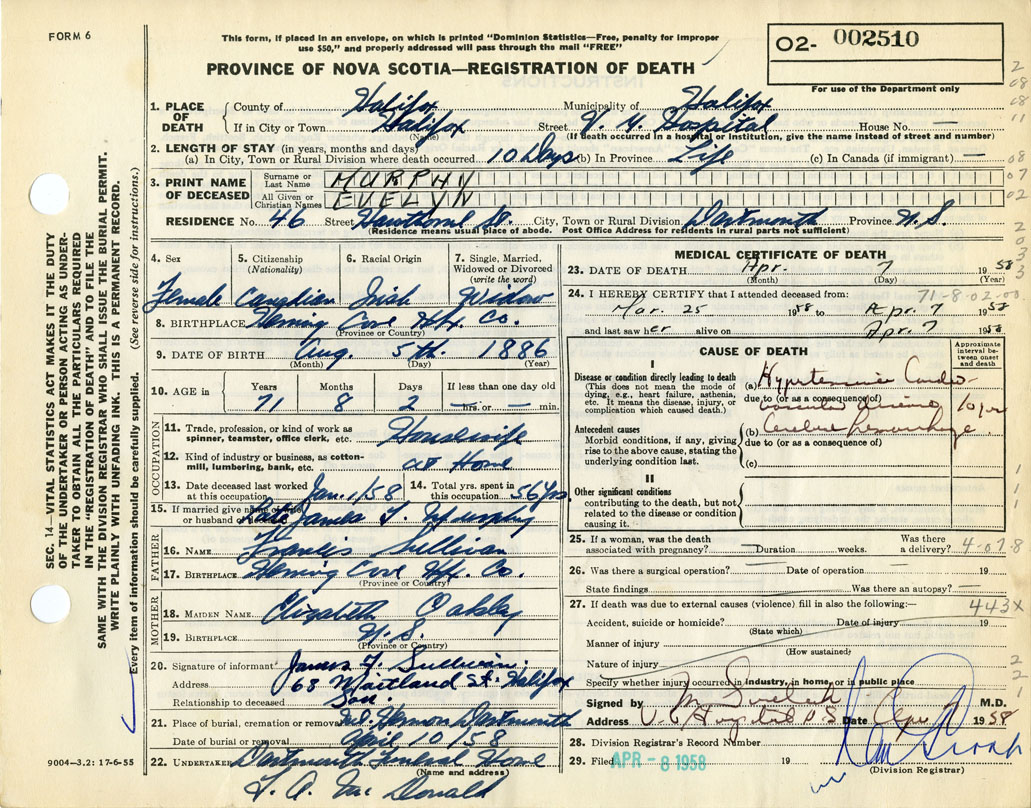 FORM 6
This form, if placed in an envelope, on which is printed "Dominion Statistics—Free, penalty for improper
use $50," and properly addressed will pass through the mail "FREE"
PROVINCE OF NOVA SCOTIA—REGISTRATION OF DEATH
02- 002510
For use of the Department only
1. PLACE OF DEATH
County of Halifax Municipality of Halifax
If in City or Town Halifax Street V. G. Hospital House No. —
(Name) (If death occurred in a hospital or Institution, give the name instead of street and number)
2. LENGTH OF STAY (in years, months and days)
(a) In City, Town or Rural Division where death occurred 10 Days (b) In Province Life (c) In Canada (if immigrant) —
3. PRINT NAME OF DECEASED
Surname or Last Name MURPHY
All Given or Christian Names EVELYN
RESIDENCE No. 46 Street Hawthorne St. City, Town or Rural Division Dartmouth Province N.S.
(Residence means usual place of abode. Post Office Address for residents in rural parts not sufficient)
4. Sex 5. Citizenship (Nationality) 6. Racial Origin 7. Single, Married, Widowed or Divorced (write the word)
Female Canadian Irish Widow
8. BIRTHPLACE Herring Cove Hfx. Co.
(Province or Country)
9. DATE OF BIRTH Aug. 5th. 1886
(Month) (Day) (Year)
10. AGE in Years Months Days If less than one day old
71 8 2 — hrs. or — min.
OCCUPATION
11. Trade, profession, or kind of work as spinner, teamster, office clerk, etc. Housewife
12. Kind of industry or business, as cotton-mill, lumbering, bank, etc. at Home
13. Date deceased last worked at this occupation Jan. 1/58 14. Total yrs. spent in this occupation 56 Yrs.
15. If married give name of wife or husband of deceased Late James T. Murphy
FATHER
16. NAME Francis Sullivan
17. BIRTHPLACE Herring Cove Hfx. Co.
(Province or Country)
MOTHER
18. MAIDEN NAME Elizabeth Oakley
19. BIRTHPLACE N.S.
(Province or Country)
20. Signature of informant James F. Sullivan.
Address 68 Maitland St. Halifax
Relationship to deceased Son
21. Place of burial, cremation or removal Mt. Hermon Dartmouth
Date of burial or removal April 10/58
22. UNDERTAKER Dartmouth Funeral Home
(Name and address)
MEDICAL CERTIFICATE OF DEATH
23. DATE OF DEATH Apr. 7 1958
(Month) (Day) (Year)
71-8-02-00
24. I HEREBY CERTIFY that I attended deceased from:
Mar. 25 1958 to Apr. 7 1958
and last saw her alive on Apr. 7 1958
CAUSE OF DEATH
Approximate interval between onset and death
I
Disease or condition directly leading to death
(This does not mean the mode of dying, e.g., heart failure, asthenia, etc. It means the disease, injury, or complication which caused death.)
(a) Hypertensive Cardio-
due to (or as a consequence of)
vascular disease 10 yr
Antecedent causes
Morbid conditions, if any, giving rise to the above cause, stating the underlying condition last.
(b) Cerebral hemorrhage
due to (or as a consequence of)
(c)
II
Other significant conditions
contributing to the death, but not related to the disease or condition causing it.
25. If a woman, was the death associated with pregnancy? — Duration weeks. Was there a delivery? 4-07-8
26. Was there a surgical operation? — Date of operation — 19
State findings Was there an autopsy? —
27. If death was due to external causes (violence) fill in also the following:— 443X
Accident, suicide or homicide? Date of injury 19
(State which)
Manner of injury
(How sustained)
Nature of injury
Specify whether injury occurred in industry, in home, or in public place
Signed by M.D.
Address V.G. Hospital Date Apr 7 1958
28. Division Registrar's Record Number
29. Filed APR - 8 1958 19
(Division Registrar)
L. A. Mc Donald
9004—3.2: 17-6-55
SEC. 14—VITAL STATISTICS ACT MAKES IT THE DUTY
OF THE UNDERTAKER OR PERSON ACTING AS UNDER-
TAKER TO OBTAIN ALL THE PARTICULARS REQUIRED
IN THE "REGISTRATION OF DEATH" AND TO FILE THE
SAME WITH THE DIVISION REGISTRAR WHO SHALL ISSUE THE BURIAL PERMIT.
WRITE PLAINLY WITH UNFADING INK. THIS IS A PERMANENT RECORD.
Every item of information should be carefully supplied. (See reverse side for instructions.)